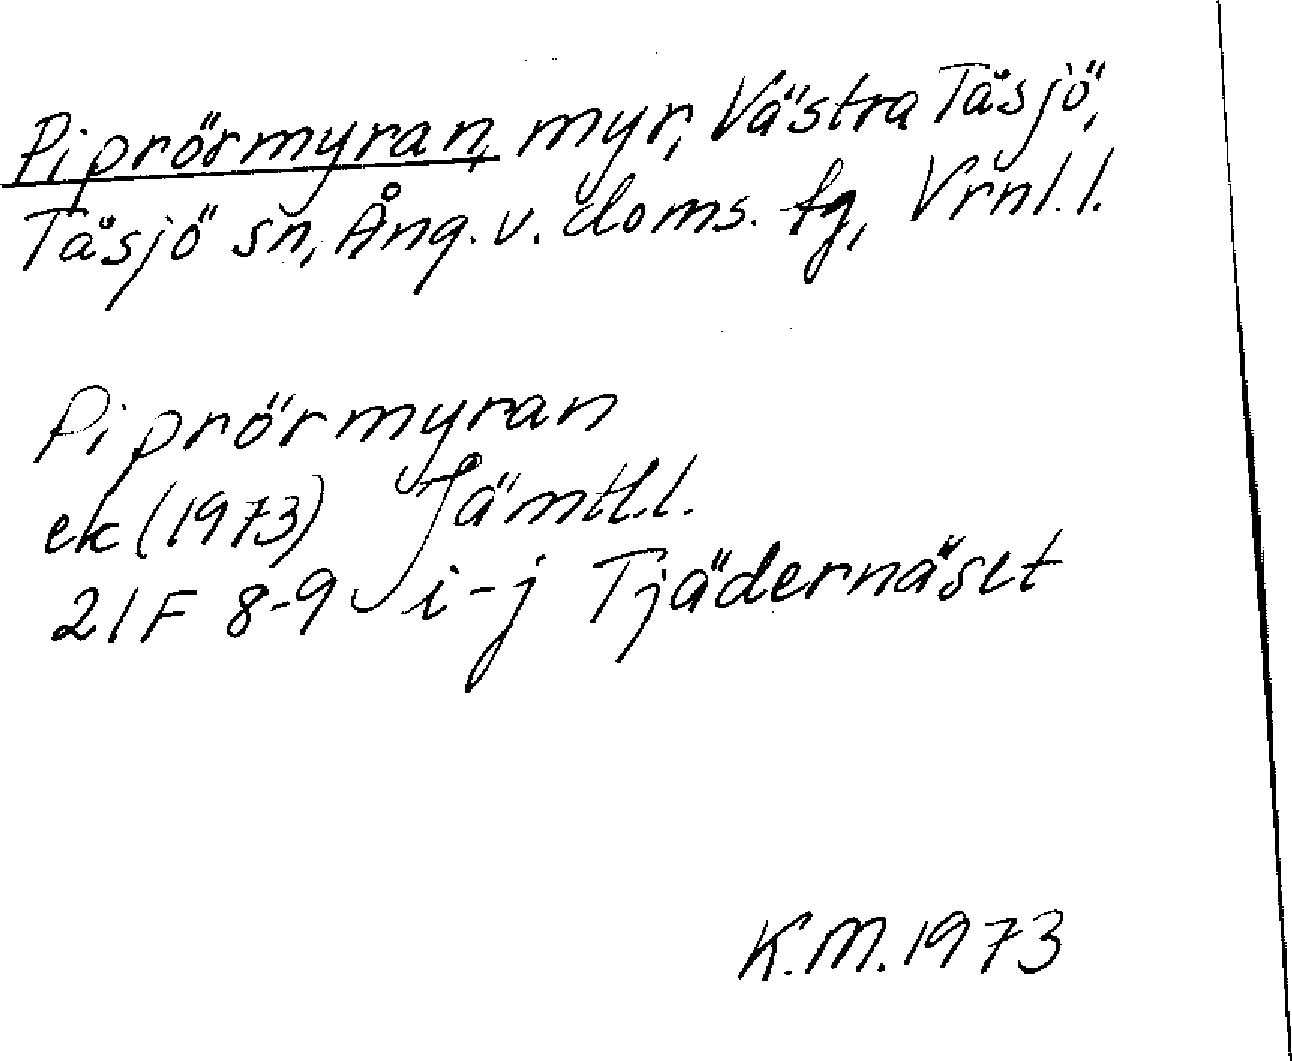 Piprörmyran, myr, Västra Tåsjö,
Tåsjö sn, Ång. v. doms. fg, Vrnl.l.
Piprörmyran
ek (1973) Jämtl.l.
21F 8-9 i-j Tjädernäset
K.M. 1973